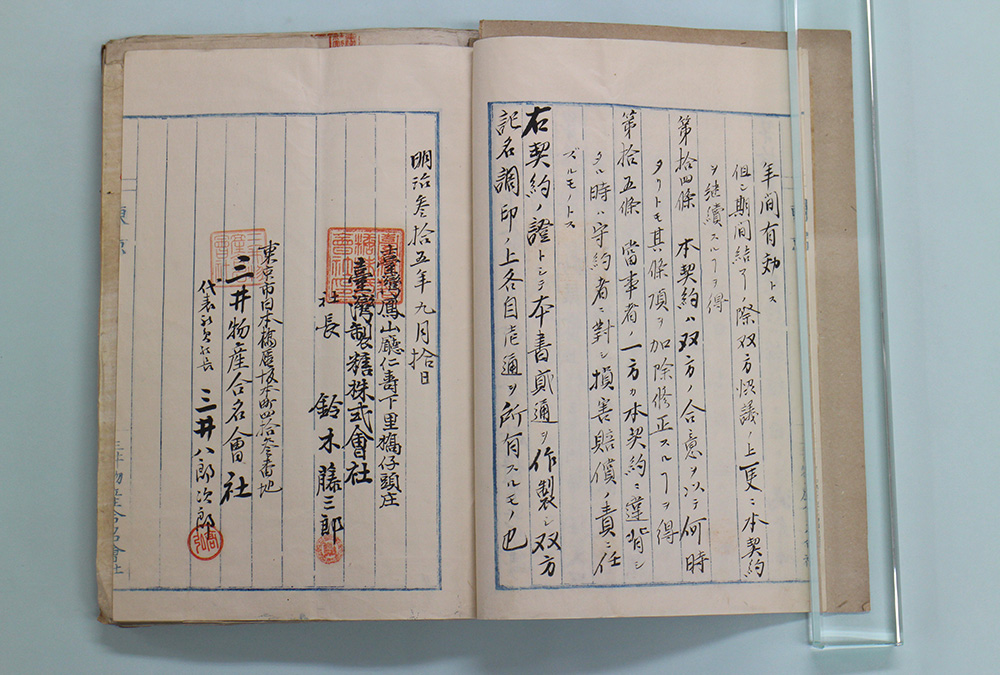 年間有効トス
但シ期間結了ノ際双方協議ノ上更ニ本契約
ヲ継續スルヿヲ得
第拾四條 本契約ハ双方ノ合意ヲ以テ何時
タリトモ其條項ヲ加除修正スルヿヲ得
第拾五條 當事者ノ一方カ本契約ニ違背シ
タル時ハ守約者ニ對シ損害賠償ノ責ニ任
ズルモノトス
右契約ノ證トシテ本書貳通ヲ作製シ双方
記名調印ノ上各自壱通ヲ所有スルモノ也
明治叁拾五年九月拾日
臺灣鳳山廳仁壽下里橋仔頭庄
臺灣製糖株式會社
社長 鈴木藤三郎
東京市日本橋區坂本町四拾叁番地
三井物産合名會社
代表社員社長 三井八郎次郎
三井物産合名會社